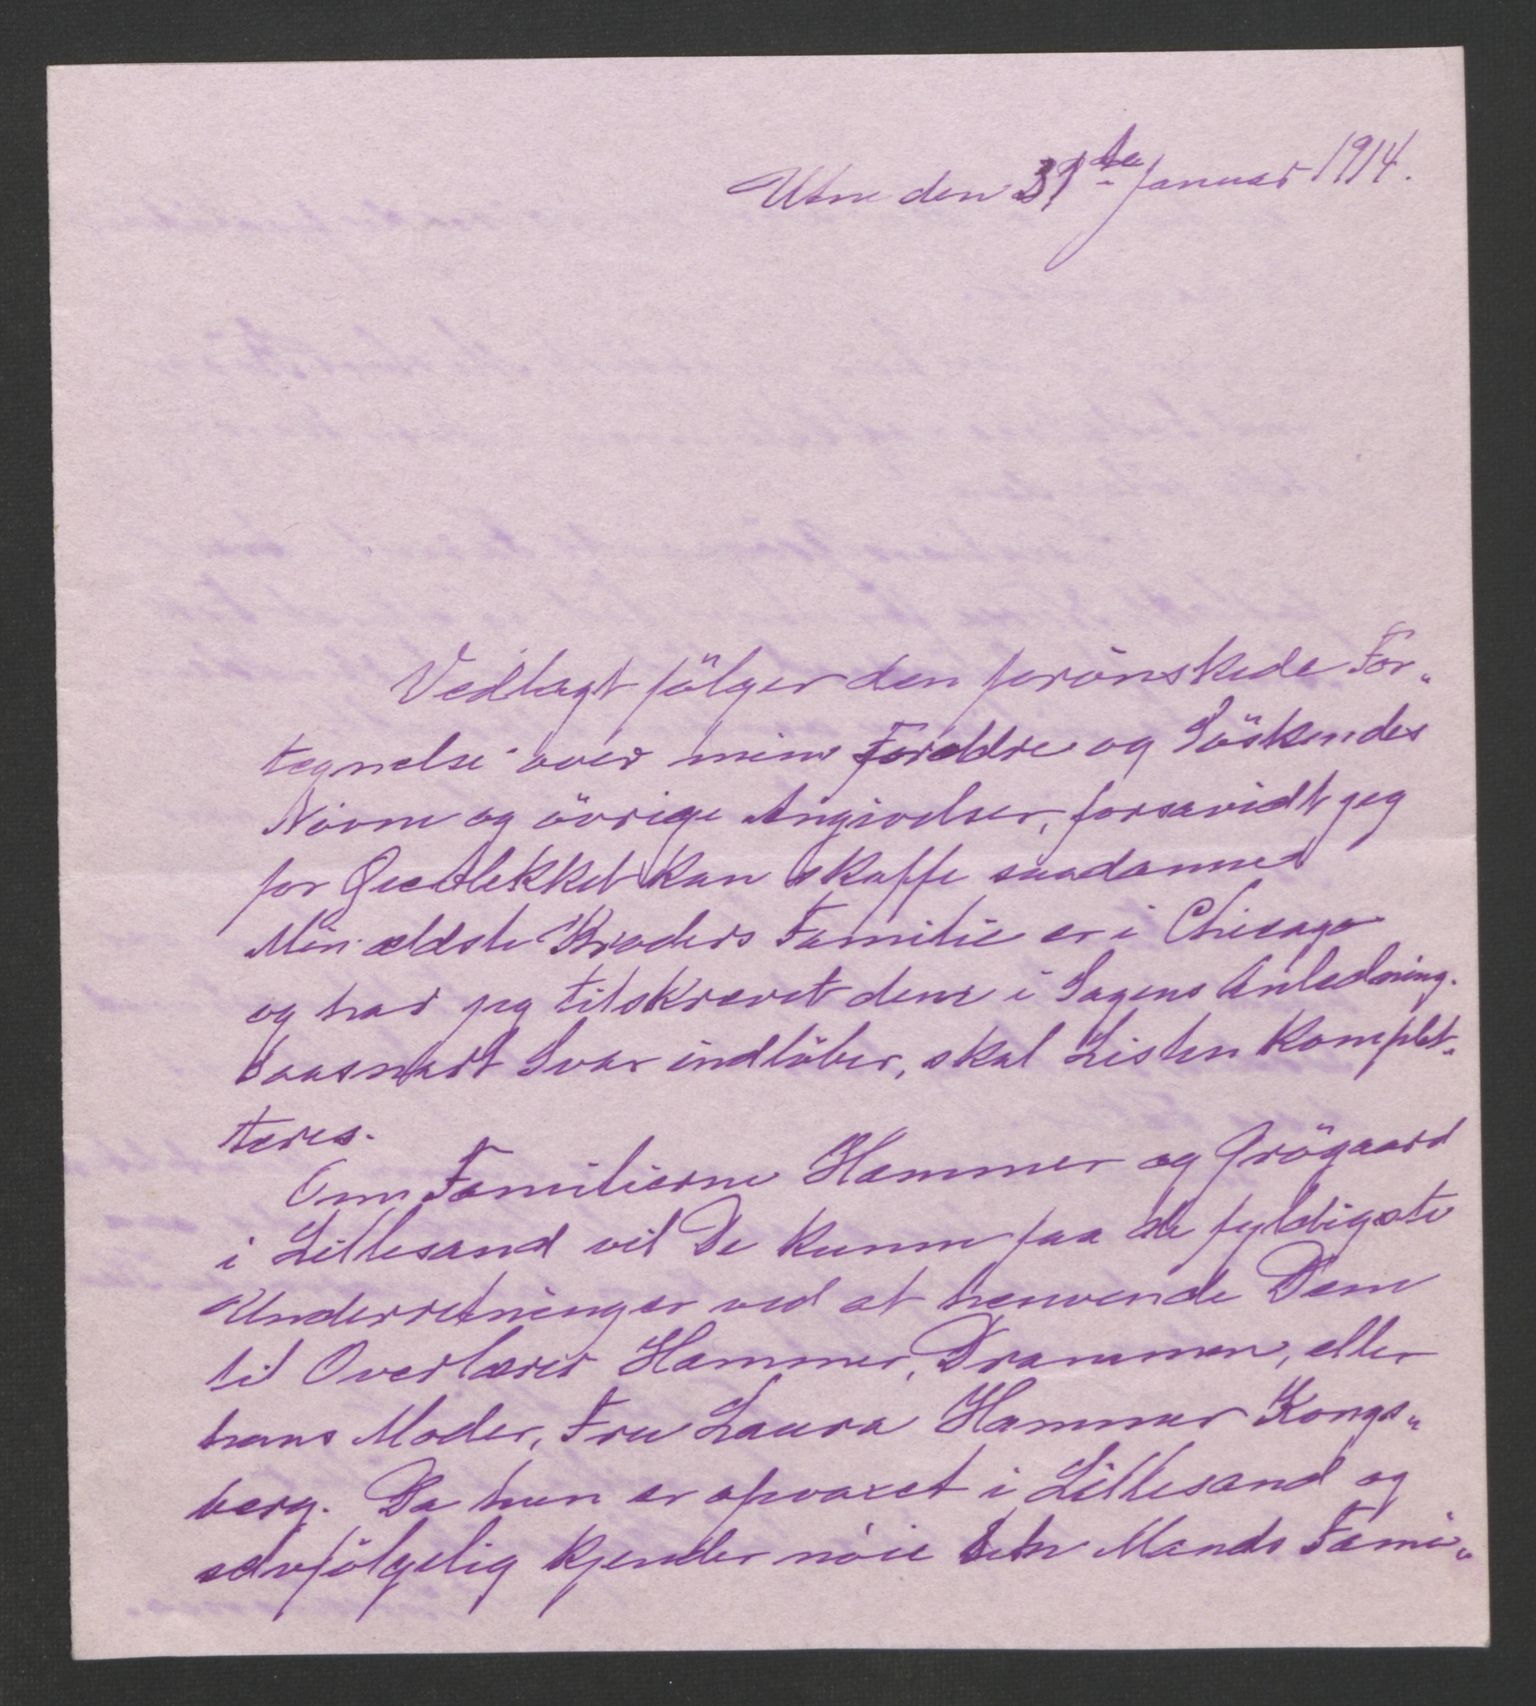 Utne den 31te Januar 1914.
Vedlagt fölger den forönskede For„
tegnelse over mine Forældre og Söskendes
Navne og övrige Angivelser, forsavidt jeg
for Öieblikket kan skaffe saadanne
Min ældste Broders Familie er i Chicago
og har jeg tilskrevet dem i Sagens Anledning.
Saasnart Svar indlöber, skal Listen komplet„
teres.
Om Familierne Hammer og Grögaard
i Lillesand vil De kunne faa de fyldigste
Underretninger ved at henvende Dem
til Overlærer Hammer, Drammen, eller
hans Moder, Fru Laura Hammer Kongs„
berg. Da hun er opvoxet i Lillesand og
selvfölgelig kjender nöie sin Mands Fami„